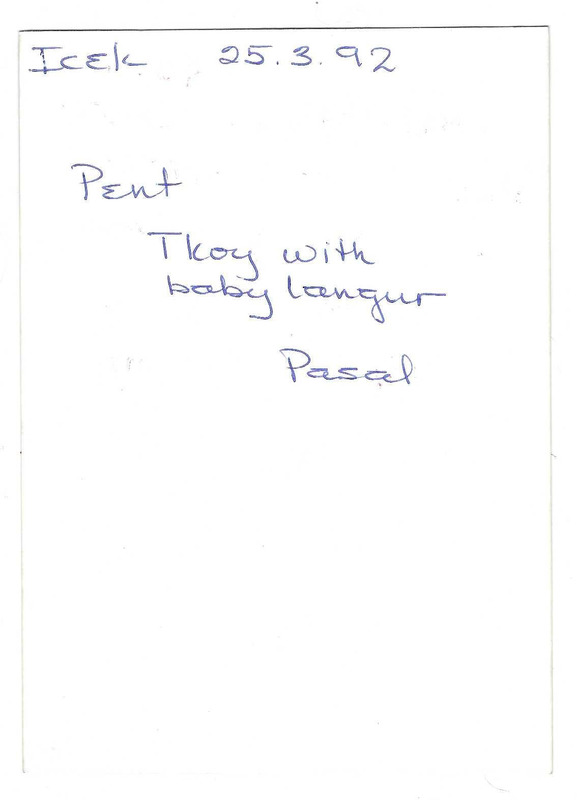 Icek 25.3.92
Pent
Tkoy with
baby langur
Pasal